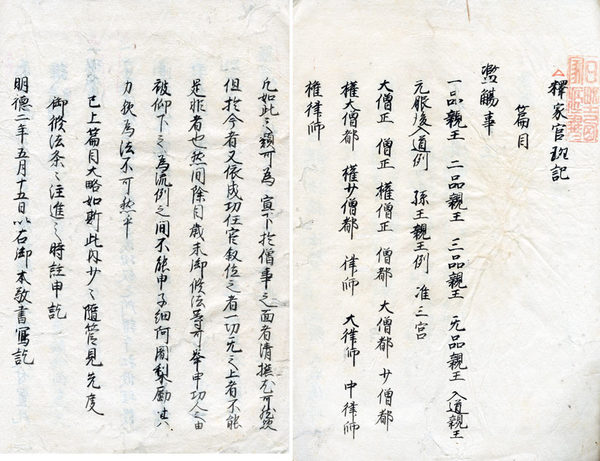 釋家官班記
篇目
濫觴事
一品親王 二品親王 三品親王 无品親王 入道親王
元服後入道例 孫王親王例 准三宮
大僧正 權僧正 僧都 大僧都 少僧都
權大僧都 權少僧都 律師 大律師 中律師
権律師
凡如此之類可為宣下於僧事之面者清撰尤可然歟
但於今者又依成功任官叙位之者一切无之上者不能
是非者也然間除目歳末御修法等可挙申功人之由
被仰下之為流例之間不能申子細阿闍梨勵其
力扶為法不可然乎
已上篇目大略如斯此内少々隨管見先度
御修法条々注進之時註申訖
明德二年五月十五日以右御本敬書寫訖